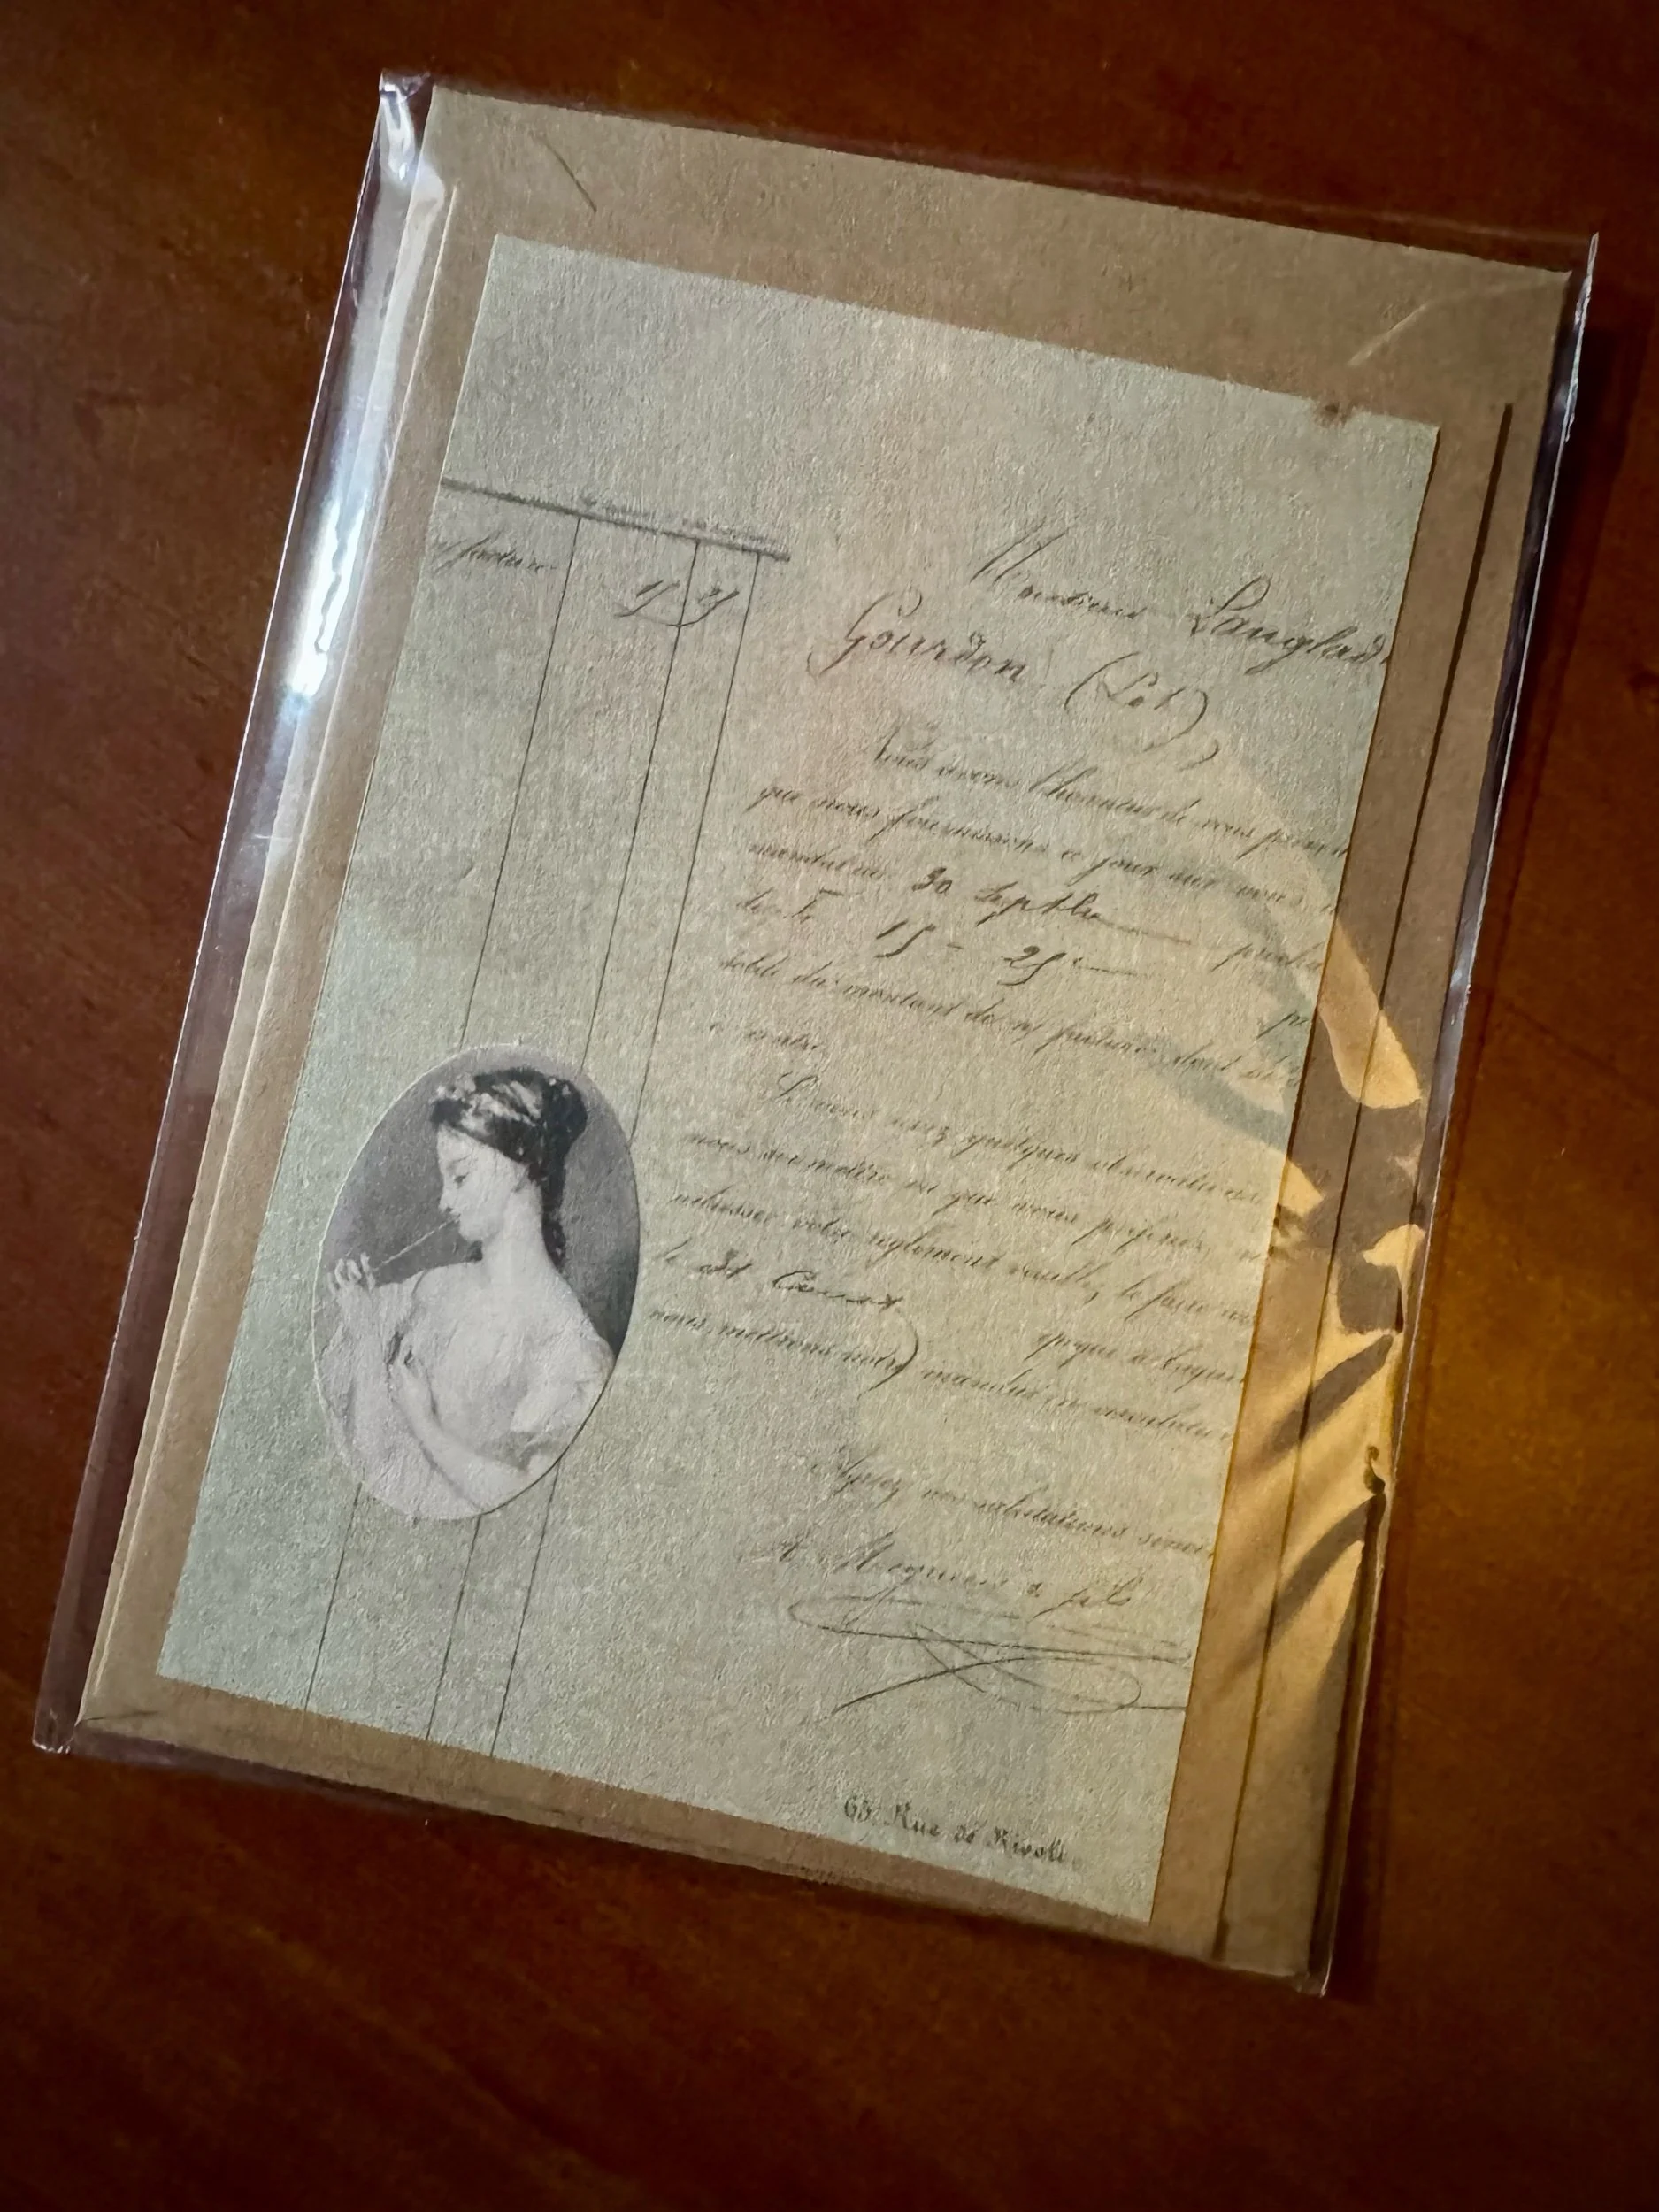 facture
15 25
Monsieur Langlad
Gourdon (Lot)
Nous avons l'honneur de vous préven
que nous fournissons ce jour sur vous u
mandat au 30 Septbre procha
de F 15 - 25 c p
solde du montant de n/ facture dont
Si vous avez quelques observations
nous soumettre ou que vous préfériez n
adresser votre règlement veuillez le faire
le 31 Courant
époque à laquel
nous mettrons notre mandat en circulation
Agréez nos salutations sincè
& fils
65, Rue de Rivoli